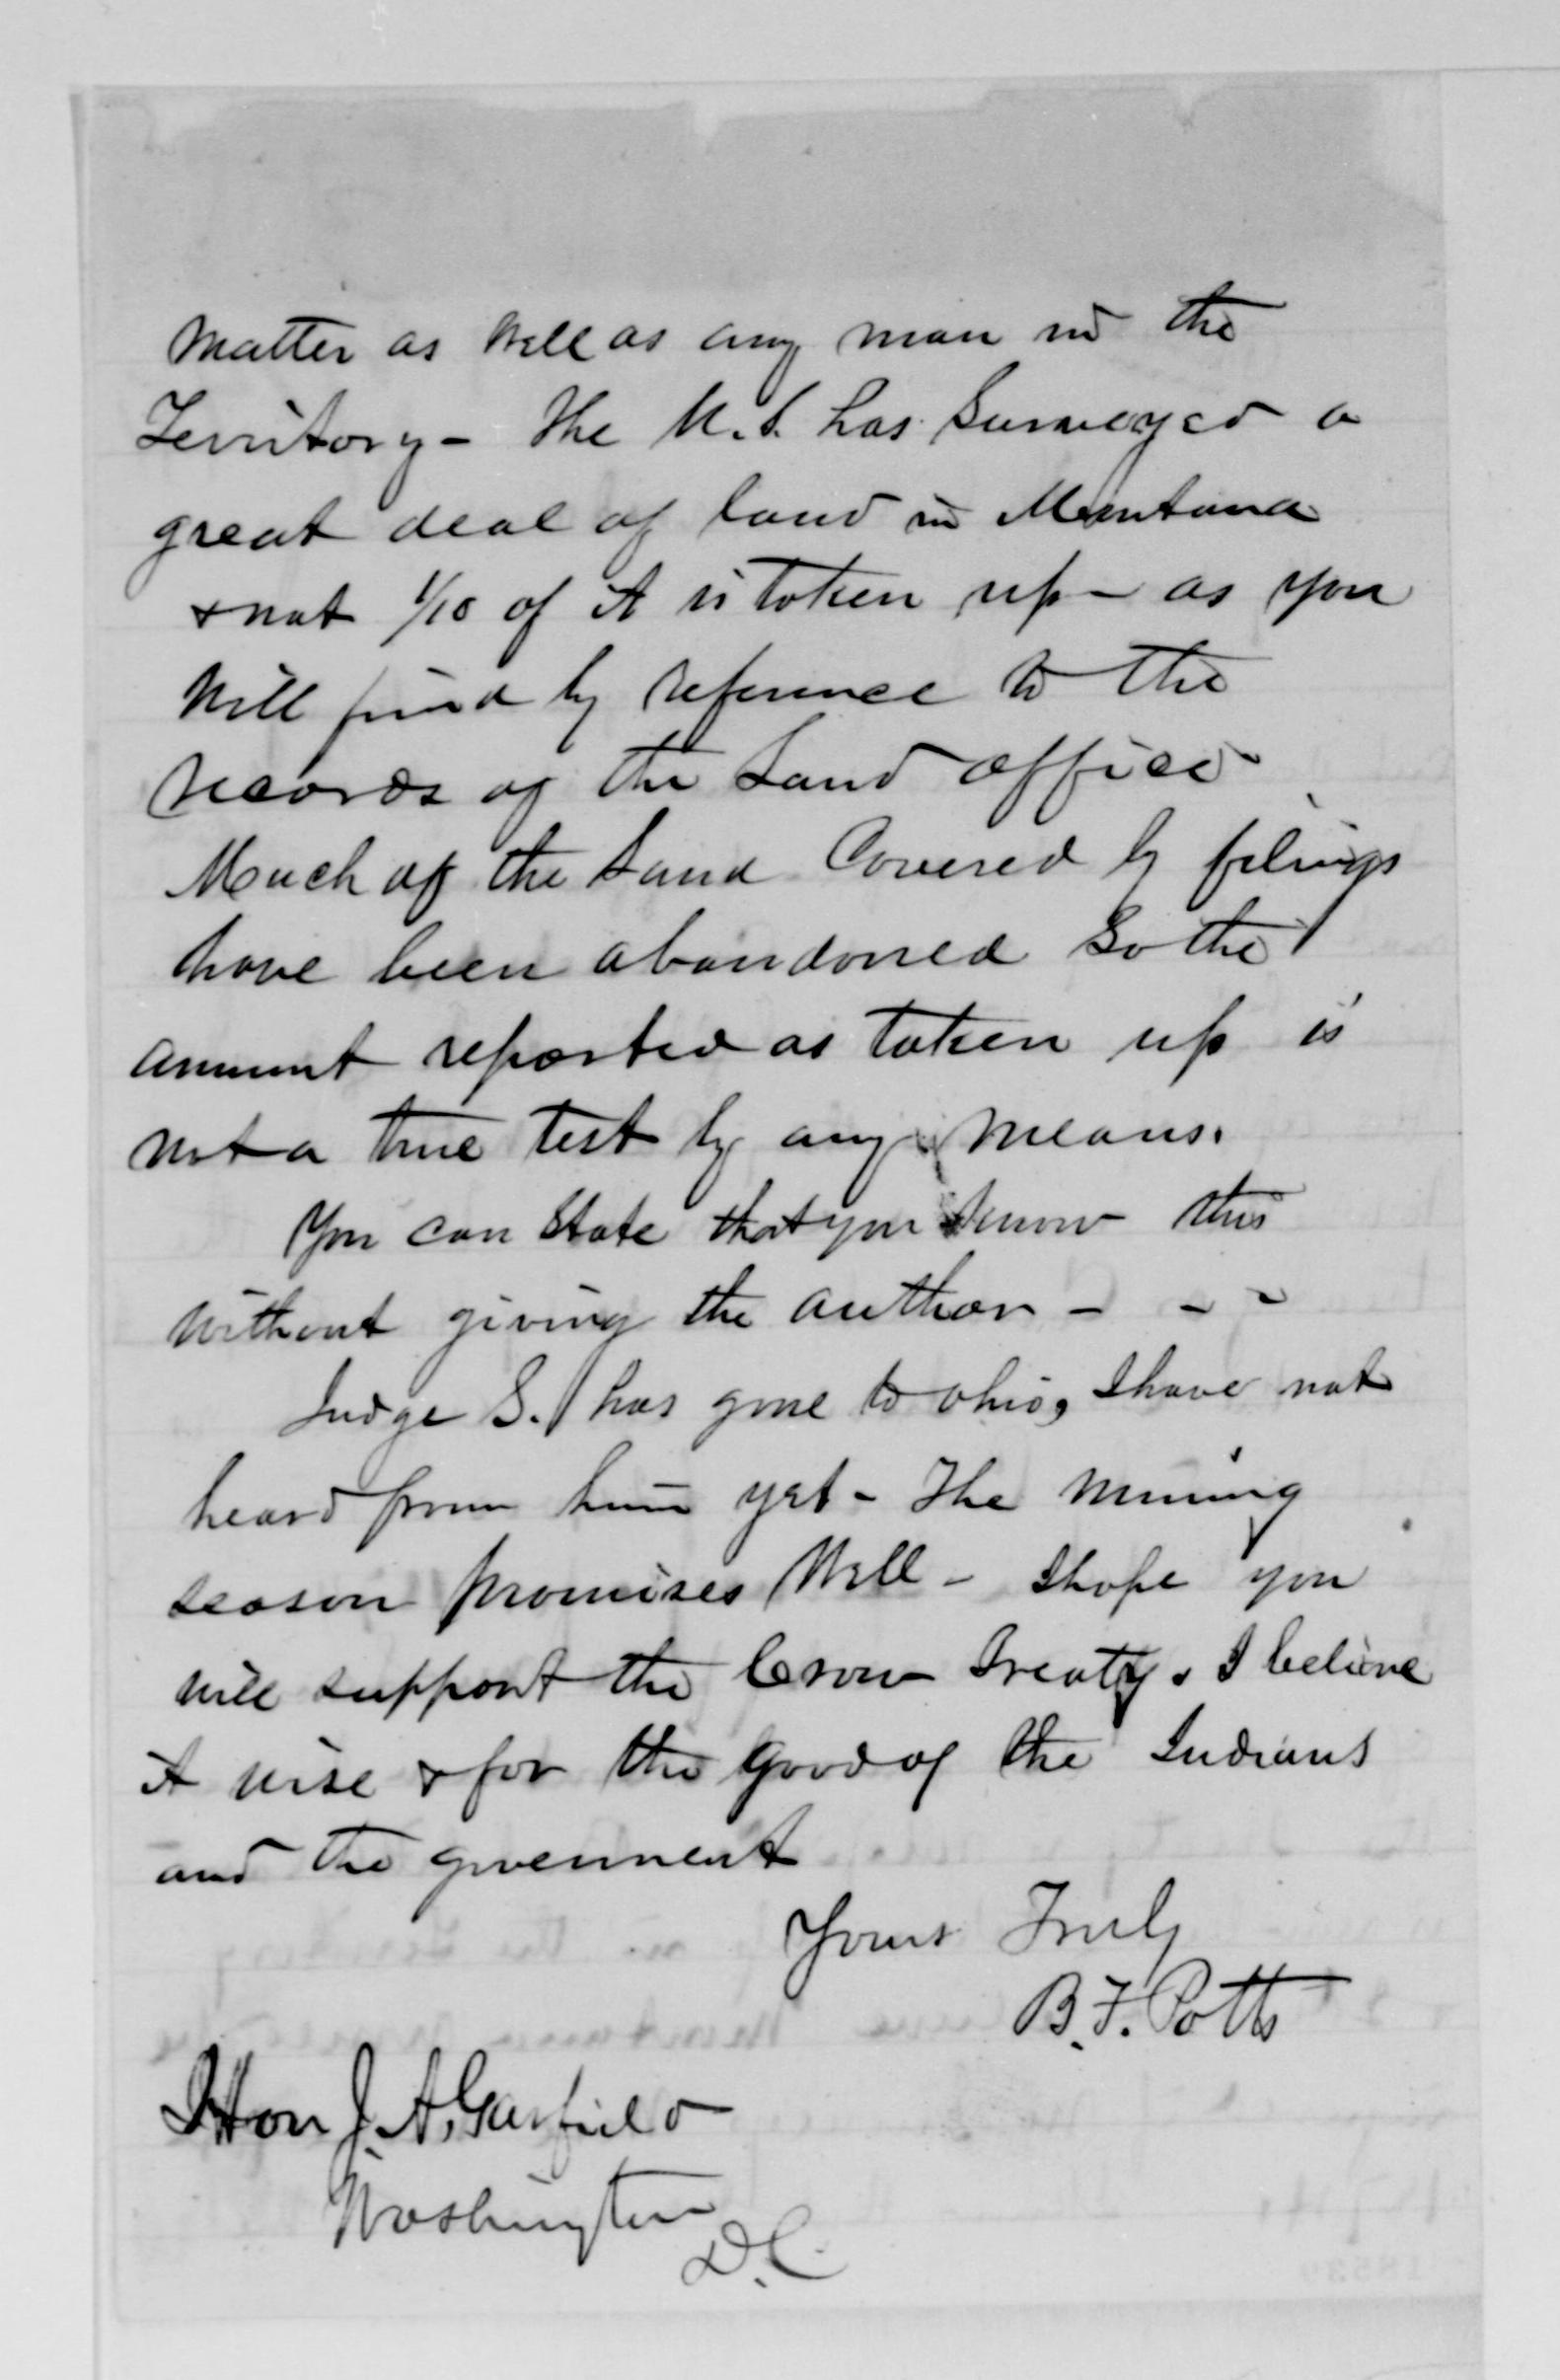 matter as well as any man in the
Territory - The U.S. has surveyed a
great deal of land in Montana
& not 1/10 of it is taken up - as you
will find by reference to the
records of the Land office
Much of the Land Covered by filings
have been abandoned so the
amount reported as taken up is
not a true test by any means.
You can state that you know this
without giving the author - - -
Judge S. has gone to Ohio, I have not
heard from him yet - The mining
season promises well - I hope you
will support the Crow Treaty. I believe
it wise & for the good of the Indians
and the government
Yours Truly
B.F. Potts
Hon J. A. Garfield
Washington
D.C.